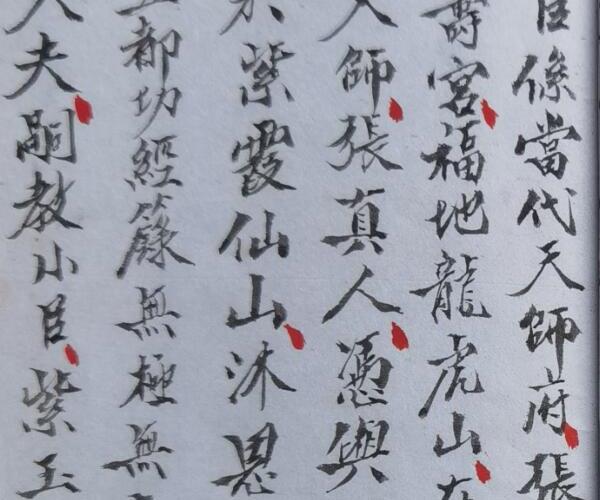 臣係當代天師府張
壽宮福地龍虎山在
天師張真人憑與
紫霞仙山沐恩
都功經籙無極無
大夫嗣教小臣紫玉